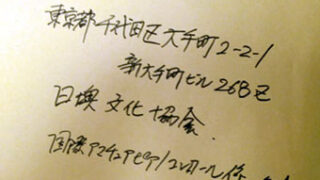 東京都千代田区大手町2-2-1
新大手町ビル 268区
日墺文化協会
国際アマチュアピアノコンクール係